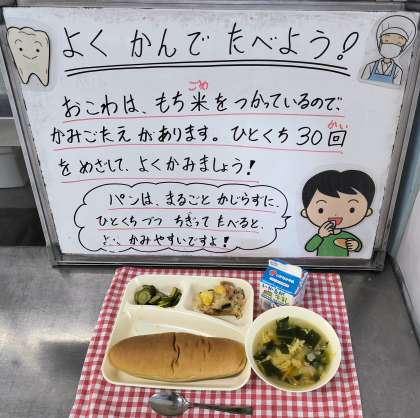 よく かんで たべよう!
おこわは、もち米をつかっているので、
ごわ
かみごたえがあります。ひとくち30回
かい
をめざして、よくかみましょう!
パンは、まるごと かじらずに、
ひとくちづつ ちぎって たべると、
かみやすいですよ!